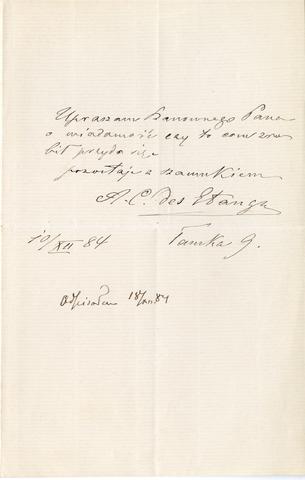 Upraszam Szanownego Pana
o wiadomość czy to com zro
bił przyda się
pozostaję z szacunkiem
A. C. des Etangs
10/XII 84
Tamka 9.
Odpisałem 18/XII 84